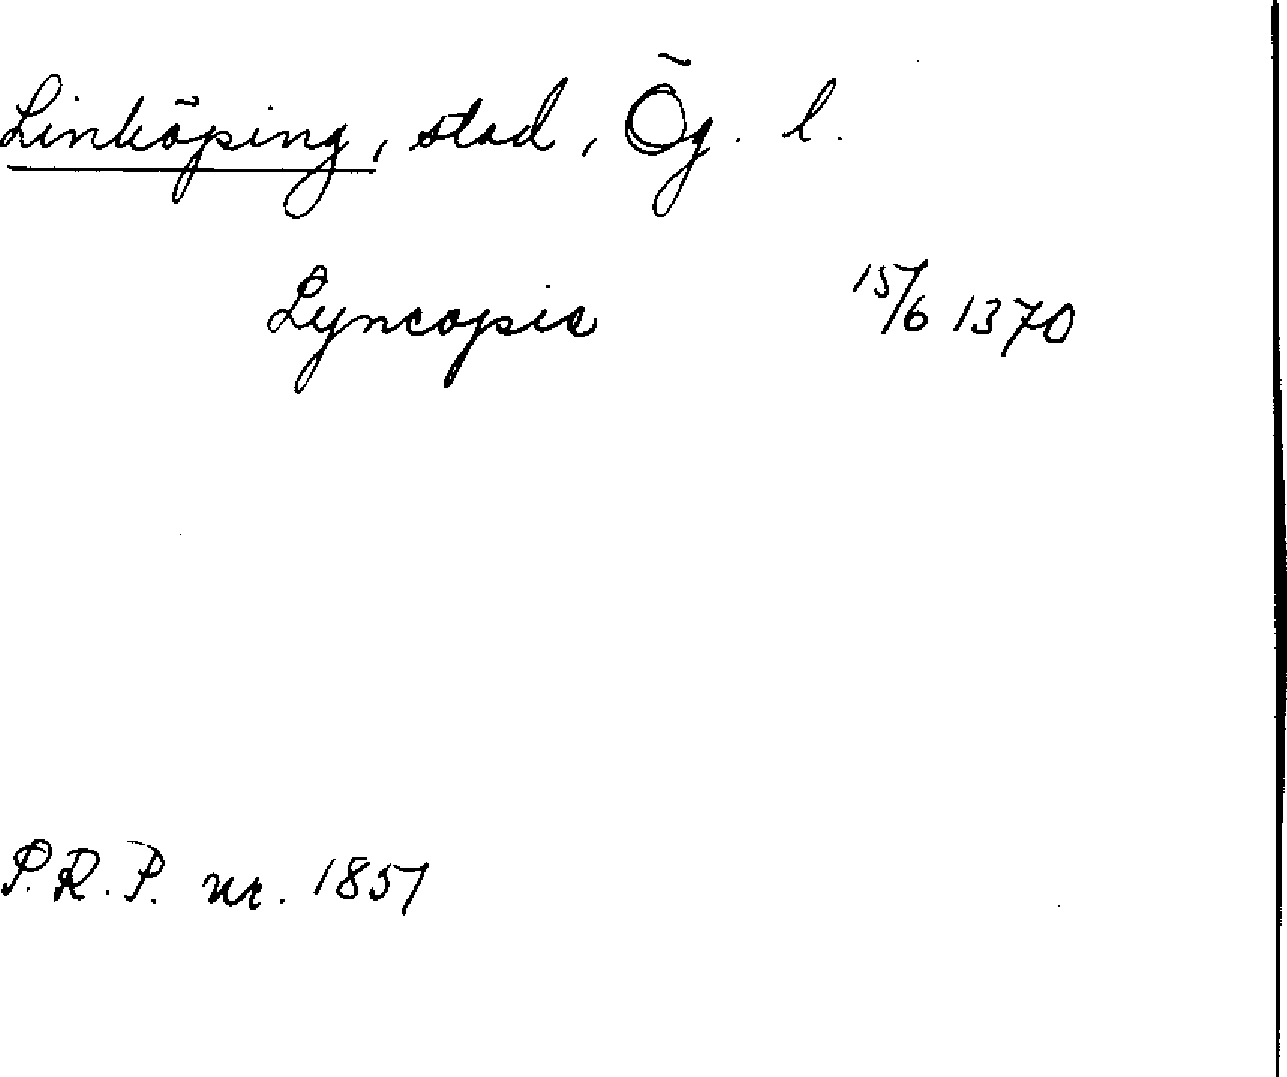 Linköping, stad, Ög. l.
Lyncopie 15/6 1370
P.R.P. nr. 1851